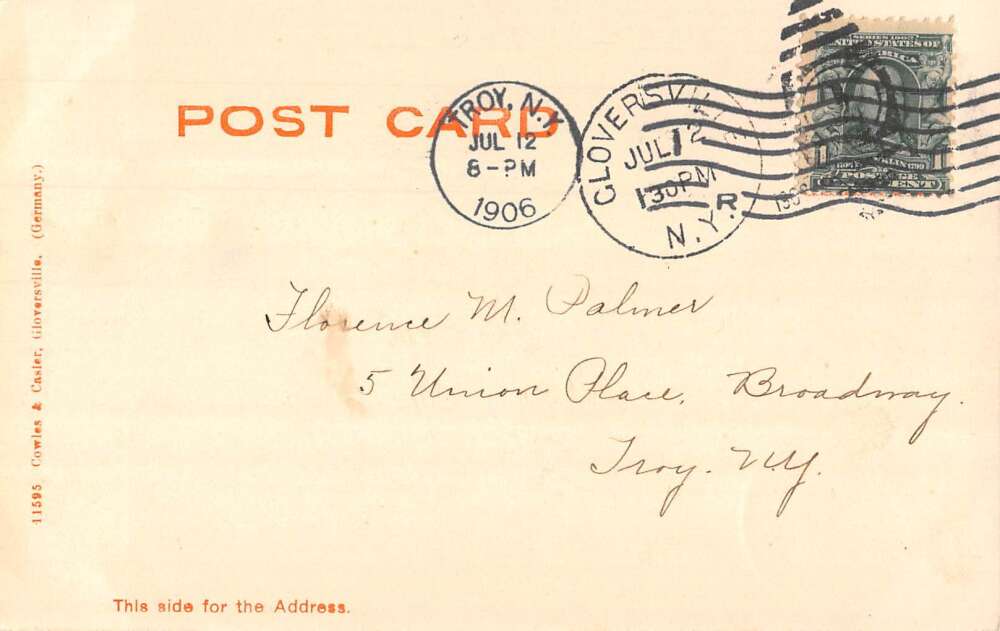 POST CARD
TROY, N.Y.
JUL 12
8-PM
1906
GLOVERSVILLE
JUL 12
130PM
R
N.Y.
SERIES 1902
UNITED STATES OF
AMERICA
POSTAGE
Florence M. Palmer
5 Union Place, Broadway.
Troy. N.Y.
11595 Cowles & Casler, Gloversville. (Germany.)
This side for the Address.